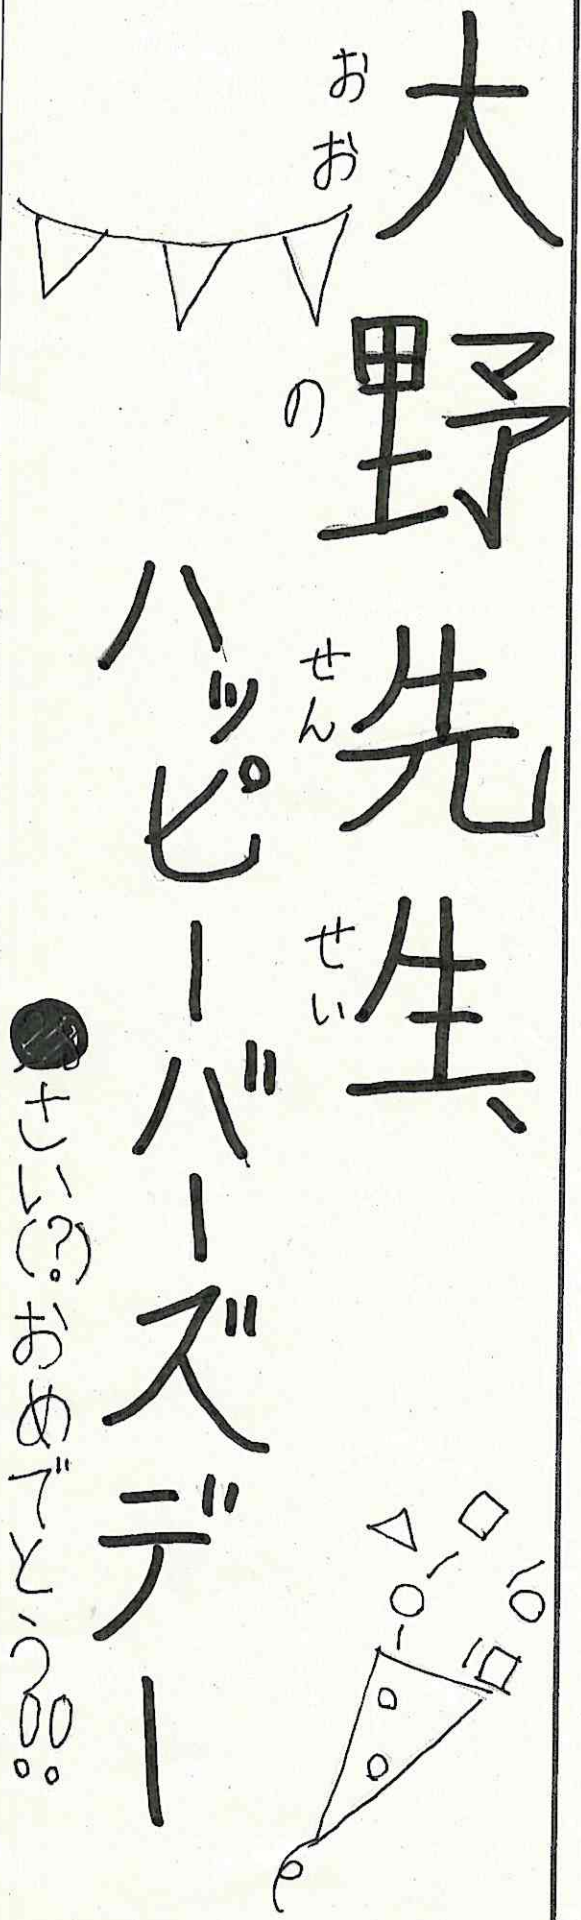 大野先生、
おおのせんせい
ハッピーバースデー
さい(?)おめでとう!!